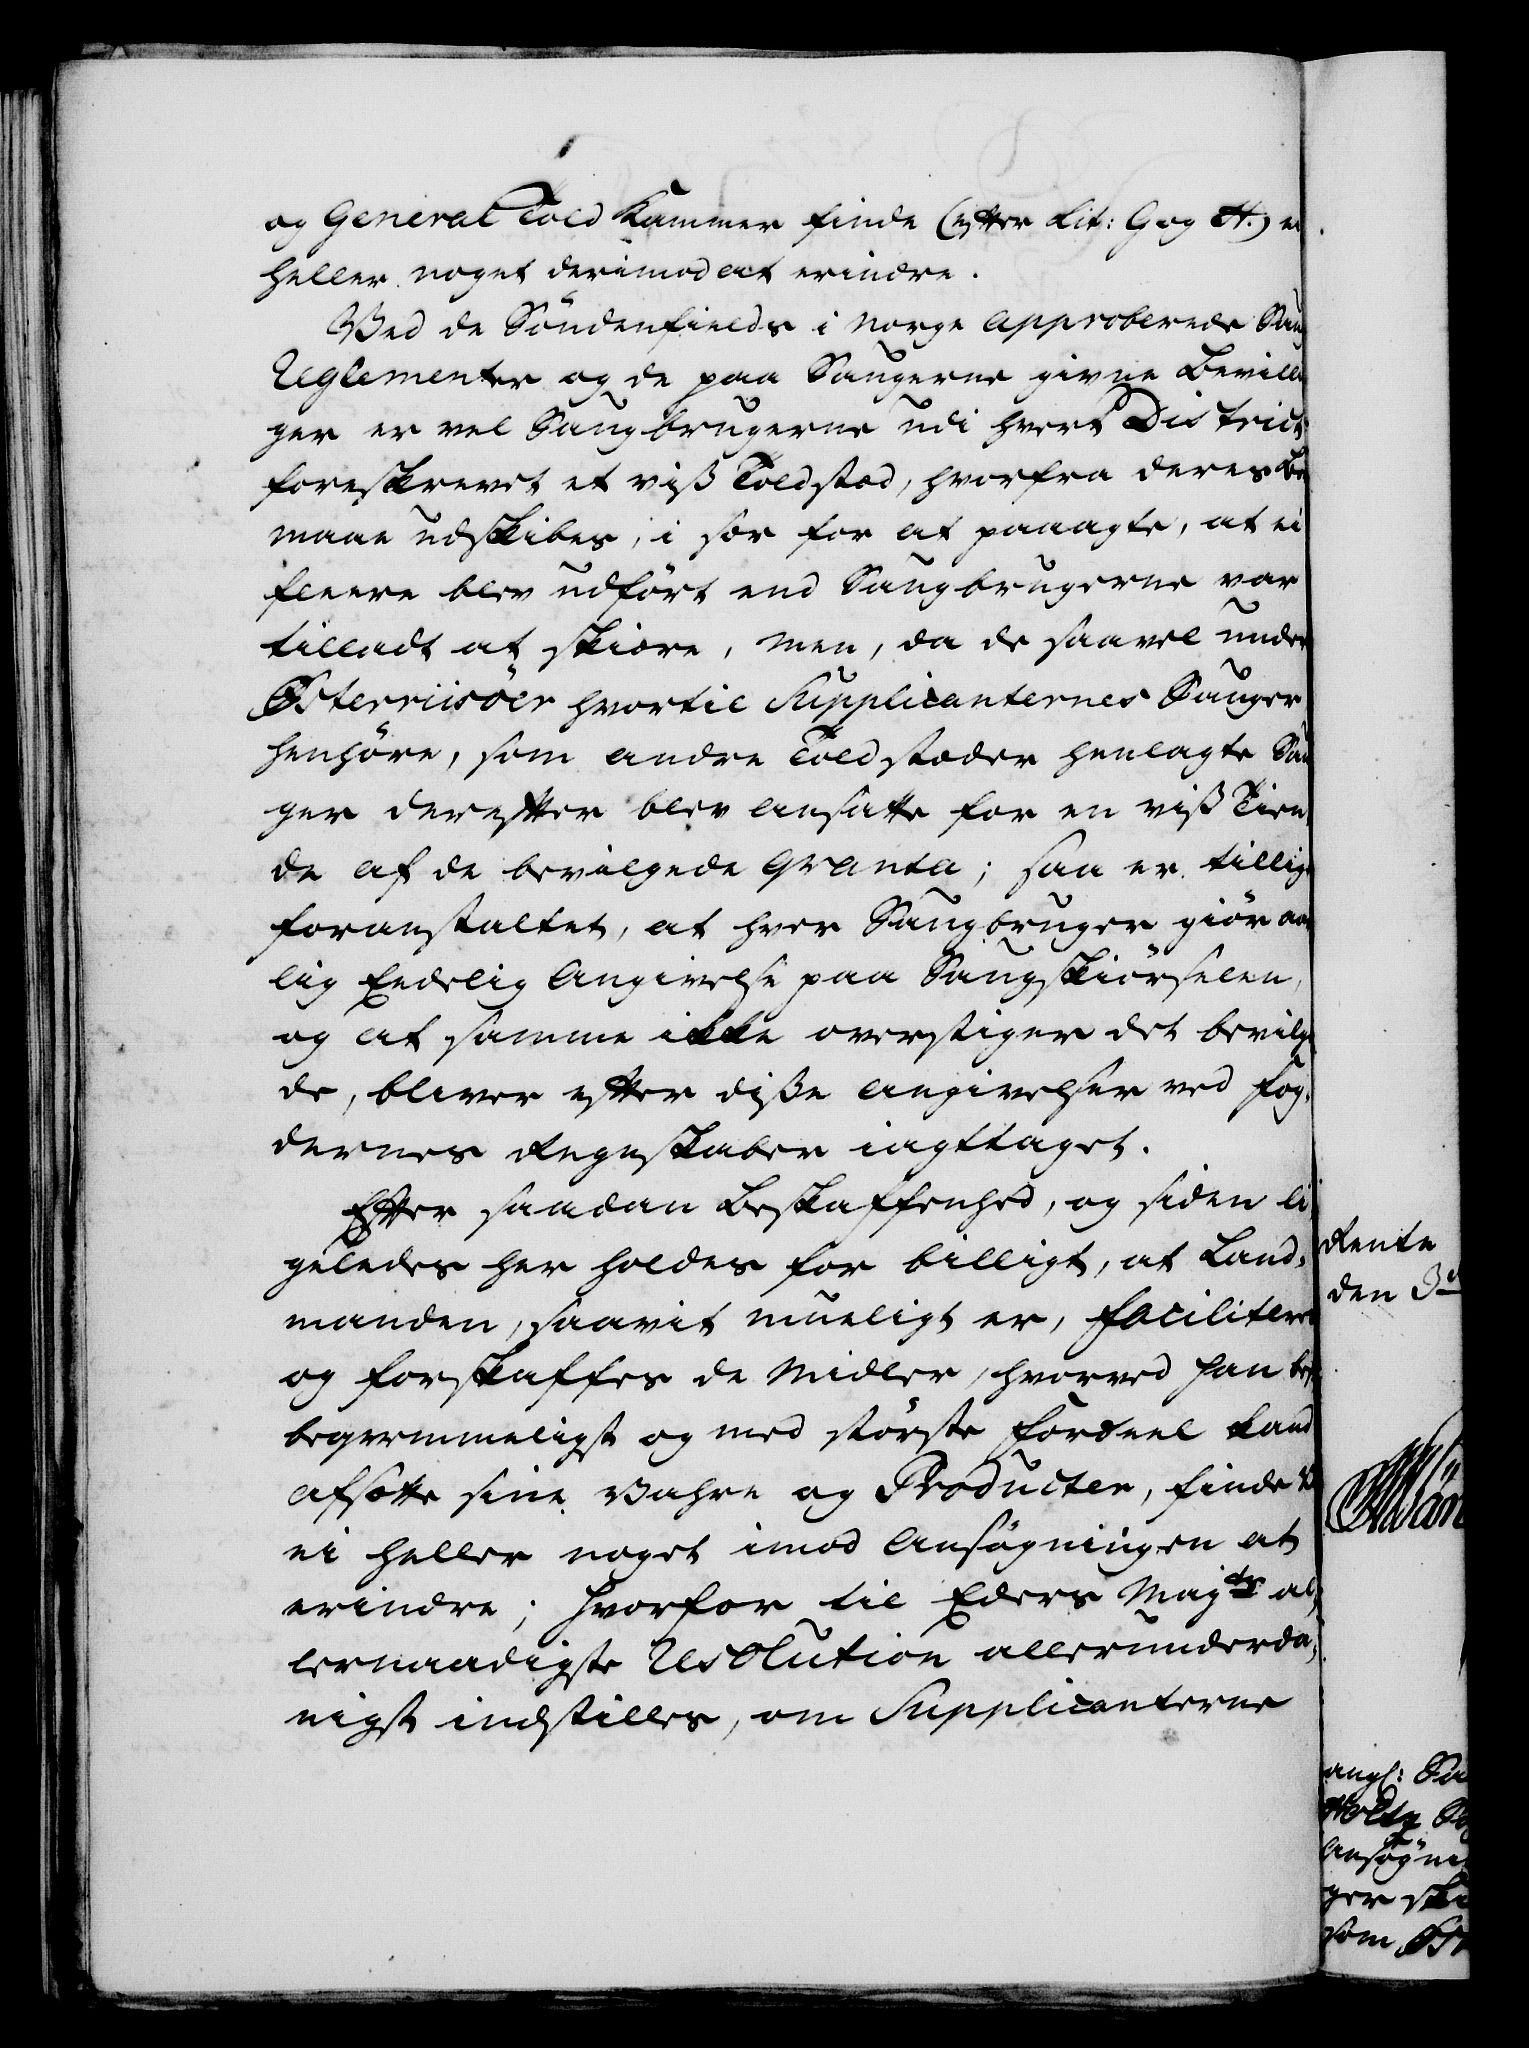 og General Told Kammer finde (efter Lit: G og H.) ei
heller noget derimod at erindre.
Ved de Söndenfields i Norge approberede Saug
Reglementer og de paa Saugerne givne Bevillin
ger er vel Saugbrugerne udi hvert District
foreskrevet et viß Toldsted, hvorfra deres Bor
maae udskibes, i sær for at paaagte, at ei
fleere blev udført end Saugbrugerne var
tilladt at skiære, men, da de saavel under
Österriisöer hvortil Supplicanternes Sauger
henhøre, som andre Toldstæder henlagte Sau
ger derefter blev ansatte for en viß Tien
de af de bevilgede qvanta; saa er tillige
foranstaltet, at hver Saugbruger giör aar
lig Eedelig Angivelse paa Saugskiörselen,
og at samme ikke overstiger det bevilge
de, bliver efter diße angivelser ved Fog,
dernes Regnskaber iagttaget.
Efter saadan Beskaffenhed, og siden li
geledes her holdes for billigt, at Land,
manden, saavit mueligt er, faciliteres
og forskaffes de Midler, hvorved han
beqvemmeligst og med störste Fordeel kand
afsætte sine Vahre og Producter, finde Vi
ei heller noget imod Ansøgningen at
erindre; hvorfor til Eders Majts al,
lernaadigste Resolution allerunderda,
nigst indstilles, om Supplicanterne
Rente
den 3
angl: Sa
Holtz
Ansøgni
ger ski
som Öst